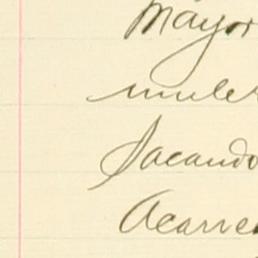 Mayor
mulet
Sacando
Acarre